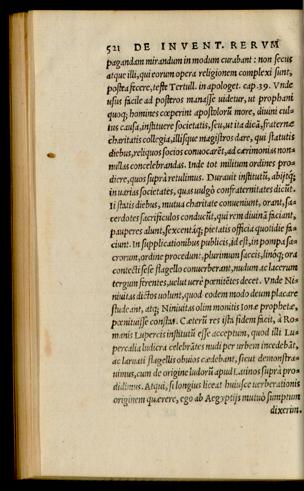 521 DE INVENT. RERVM
pagandam mirandum in modum curabant: non secus
atque illi, qui eorum opera religionem complexi sunt,
postea fecere, teste Tertull. in apologet. cap. 39. Vnde
usus facile ad posteros manasse uidetur, ut prophani
quoq; homines cœperint apostolorũ more, diuini cul-
tus causa, instituere societatis, seu, ut ita dicã, fraternæ
charitatis collegia, illisque magistros dare, qui statutis
diebus, reliquos socios conuocarẽt, ad cærimonias non-
nullas concelebrandas. Inde tot militum ordines pro-
diere, quos suprà retulimus. Durauit institutũ, abijtq́;
in uarias societates, quas uulgò confraternitates dicũt.
Ii statis diebus, mutua charitate conueniunt, orant, sa-
cerdotes sacrificulos conducũt, qui rem diuinã faciant,
pauperes alunt, sexcent.áq; pietatis officia quotidie fa-
ciunt. In supplicationibus publicis, id est, in pompa sa-
crorum, ordine procedunt: plurimum saccis, linóq; ora
contecti sese flagello conuerberant, nudum ac lacerum
tergum ferentes, uelut uerè pœnitẽtes decet. Vnde Ni-
niuitas dictos uolunt, quod eodem modo deum placare
studeant, atq; Niniuitas olim monitis Ionæ prophetæ,
pœnituisse constat. Cæterũ res ista fidem facit, à Ro-
manis Lupercis institutũ esse acceptum, quod illi Lu-
percalia ludicra celebrãtes nudi per urbem incedebãt,
ac laruati flagellis obuios cædebant, sicut demonstra-
uimus, cum de origine ludorũ apud Latinos suprà pro-
didimus. Atqui, si longius liceat huiusce uerberationis
originem quærere, ego ab Aegyptijs mutuò sumptum
dixerim.